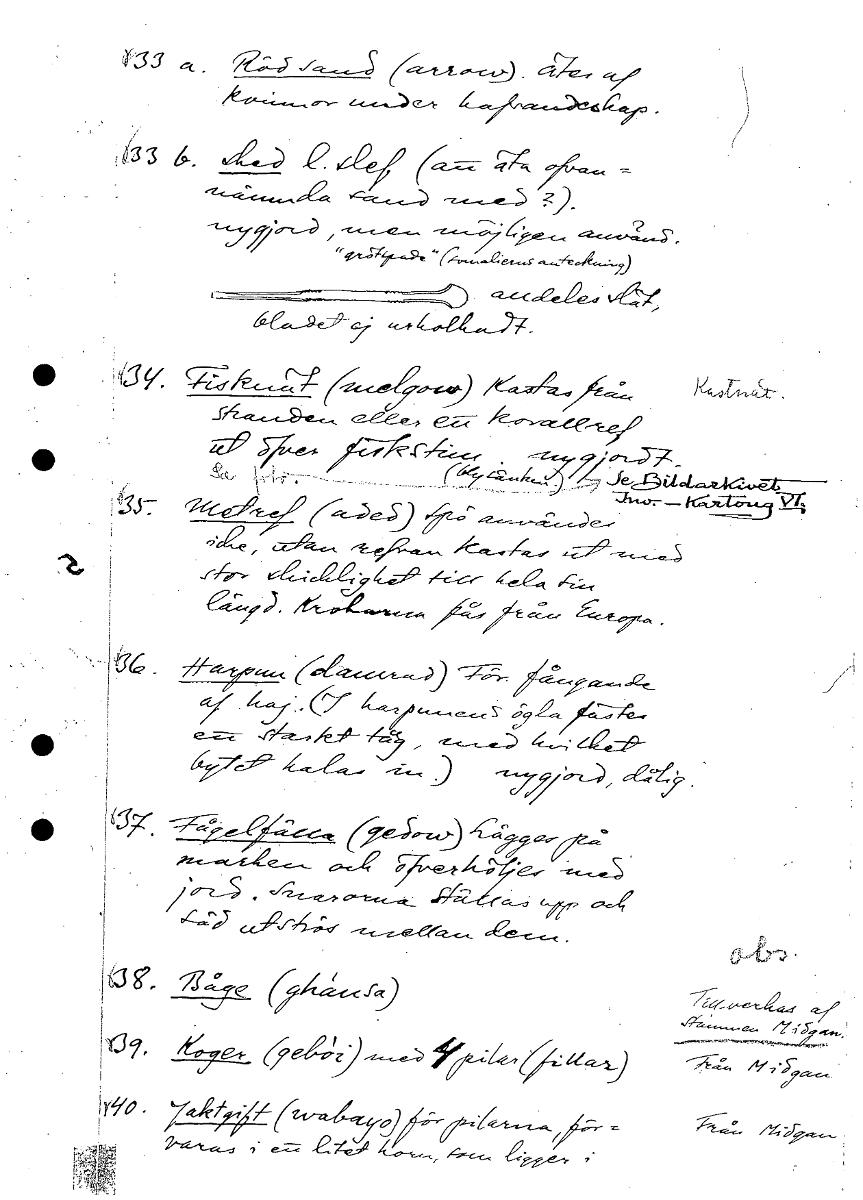 33 a. Röd sand (arrow). Ätes af
kvinnor under hafvandeskap.
33 b. Sked l. slef (att äta ofvan=
nämnda sand med?).
nygjord, men möjligen använd.
"grötspade" (somalierns anteckning)
andeles slät,
bladet ej urholkadt.
34. Fisknät (melgow) Kastas från
Kastnät.
stranden eller ett korallref
ut öfver fiskstim. nygjordt.
Se foto. (blysänken) → Se Bildarkivet
Inv. - Kartong VI.
35. Metref (aded) Spö användes
icke, utan refvan kastas ut med
stor skicklighet till hela sin
längd. Krokarna fås från Europa.
2
36. Harpun (damrad) För fångande
af haj. (I harpunens ögla fästes
ett starkt tåg, med hvilket
bytet halas in.) nygjord, dålig.
37. Fågelfälla (gedow) Lägges på
marken och öfverhöljes med
jord. Snarorna ställas upp och
säd utströs mellan dem.
obs.
38. Båge (ghánsa)
Tillverkas af
stammen Midgan.
39. Koger (gebói) med 4 pilar (fillar)
Från Midgan
40. Jaktgift (wabayo) för pilarna, för=
Från Midgan
varas i ett litet horn, som ligger i